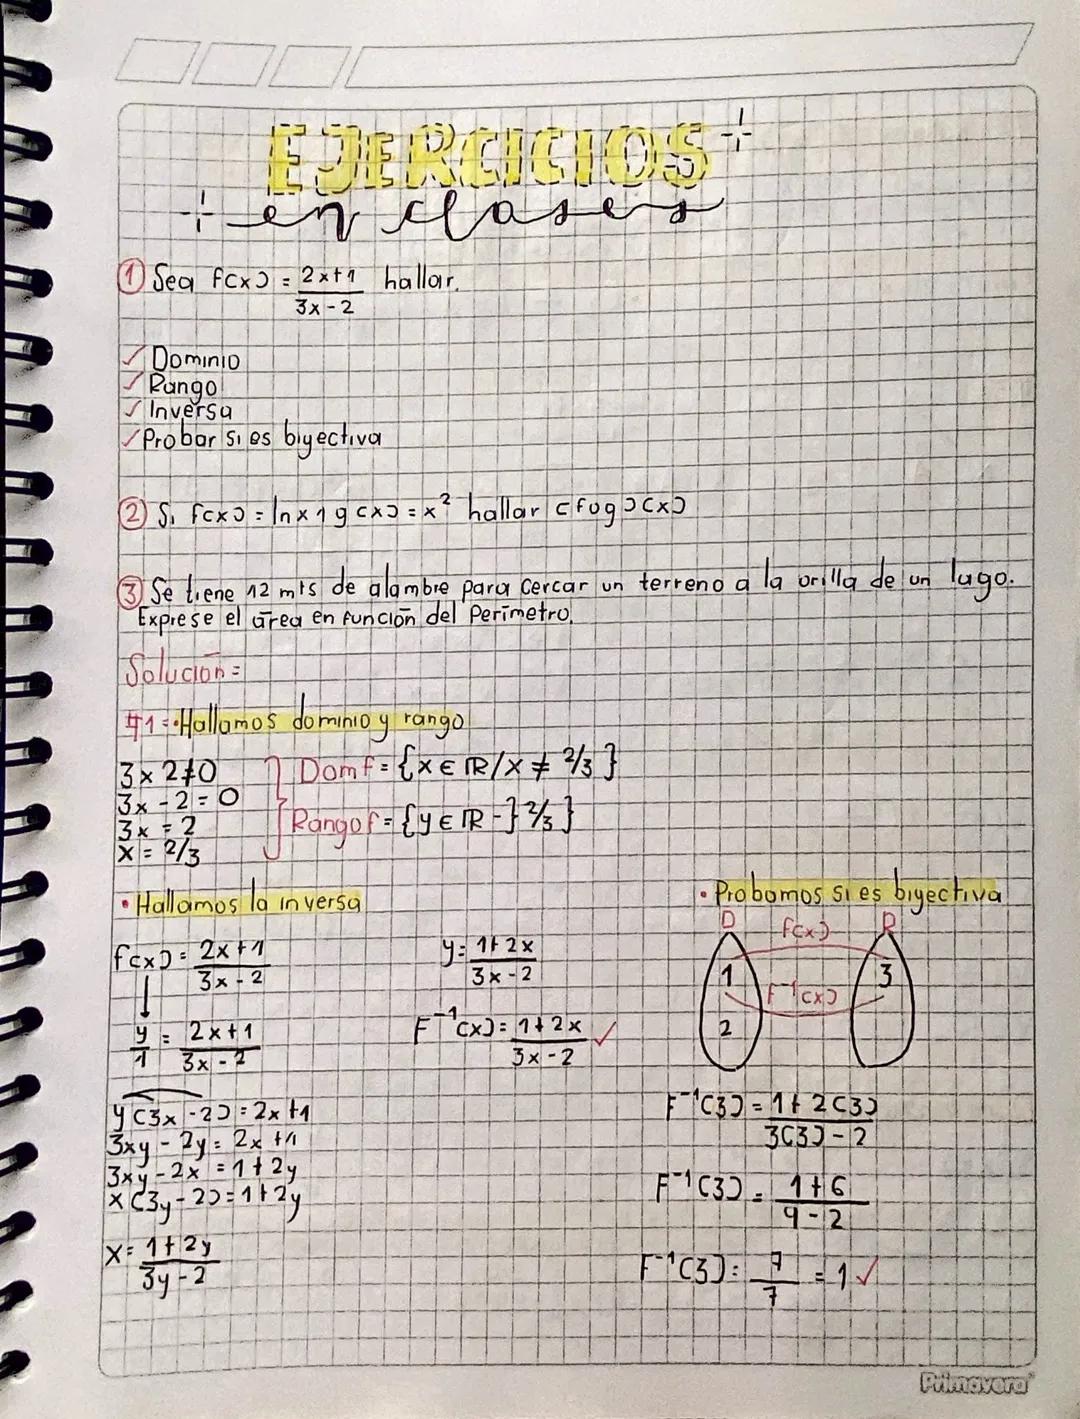 EJERCICIOS
en clases
① Sea f(x) = 2x+1 hallar.
3x - 2
✓ Dominio
✓ Rango
✓ Inversa
✓ Probar si es biyectiva
② Si f(x) = ln x ∧ g(x) = x² hallar (fog)(x)
③ Se tiene 12 mts de alambre para cercar un terreno a la orilla de un lago.
Exprese el área en función del Perímetro.
Solución=
#1= • Hallamos dominio y rango
3x 2≠0
3x - 2 = 0
3x = 2
x = 2/3
Dom f = {x ∈ ℝ / x ≠ 2/3 }
Rango f = {y ∈ ℝ - } 2/3 }
• Hallamos la inversa
f(x) = 2x+1
3x - 2
y = 2x+1
1 3x - 2
y(3x - 2) = 2x +1
3xy - 2y = 2x +1
3xy - 2x = 1 + 2y
x(3y - 2) = 1 + 2y
x = 1 + 2y
3y - 2
y = 1 + 2x
3x - 2
F⁻¹(x) = 1 + 2x ✓
3x - 2
• Probamos si es biyectiva
D f(x) R
1 3
F⁻¹(x)
2
F⁻¹(3) = 1 + 2(3)
3(3) - 2
F⁻¹(3) = 1 + 6
9 - 2
F⁻¹(3) = 7 = 1 ✓
7
Primavera